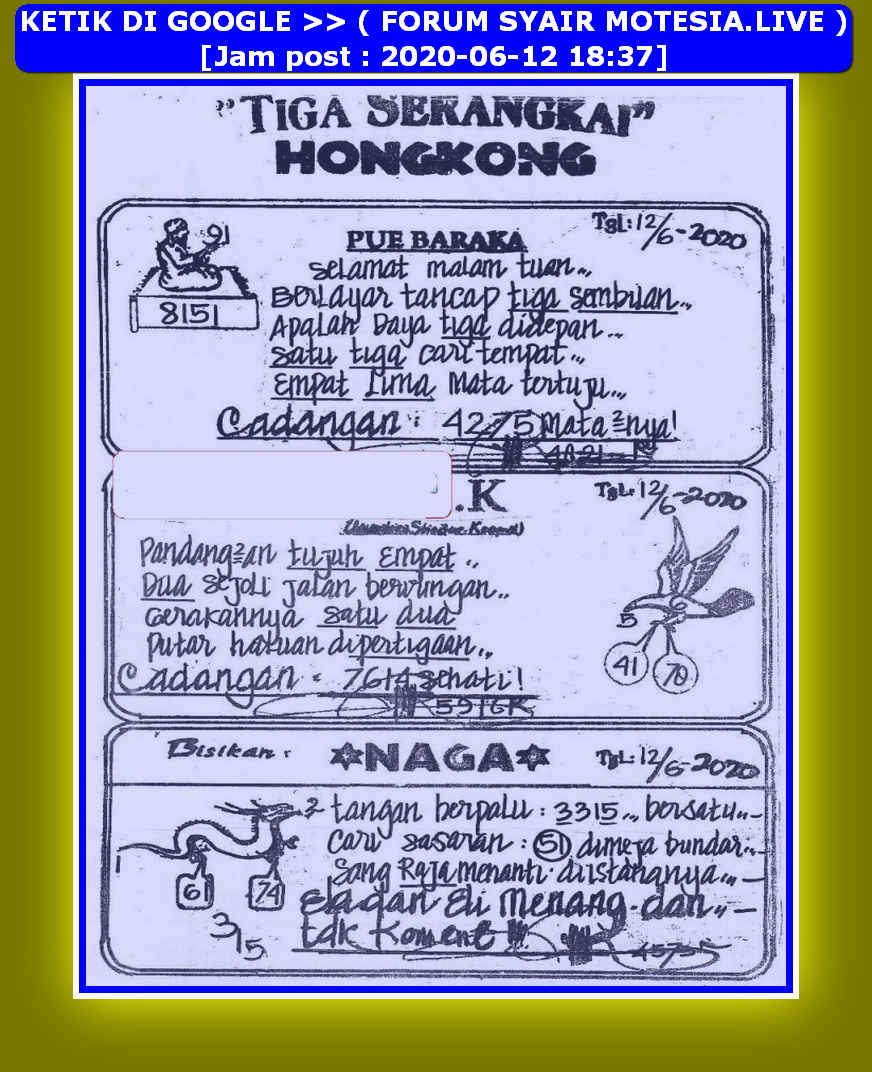 KETIK DI GOOGLE >> ( FORUM SYAIR MOTESIA.LIVE )
[Jam post : 2020-06-12 18:37]
"TIGA SERANGKAI"
HONGKONG
91
8151
Tgl: 12/6-2020
PUE BARAKA
Selamat malam tuan..,
Berlayar tancap tiga sembilan..,
Apalah Daya tiga didepan...
Satu tiga cari tempat..,
Empat Lima Mata tertuju..,
Cadangan : 4275 Mata ²nya!
.K
Tgl. 12/6-2020
Pandang²an tujuh Empat ..
Dua sejoli jalan beruringan..
Gerakannya satu dua
Putar haluan dipertigaan..,
Cadangan : 7614 sehati!
5916K
5
41
70
Bisikan :
NAGA
Tgl: 12/6-2020
2 tangan berpalu : 3315.., bersatu..-
Cari sasaran : 51 dimeja bundar..-
Sang Raja menanti diistananya..,-
Menang dan..-
tdk Koment
1
61
74
3/15